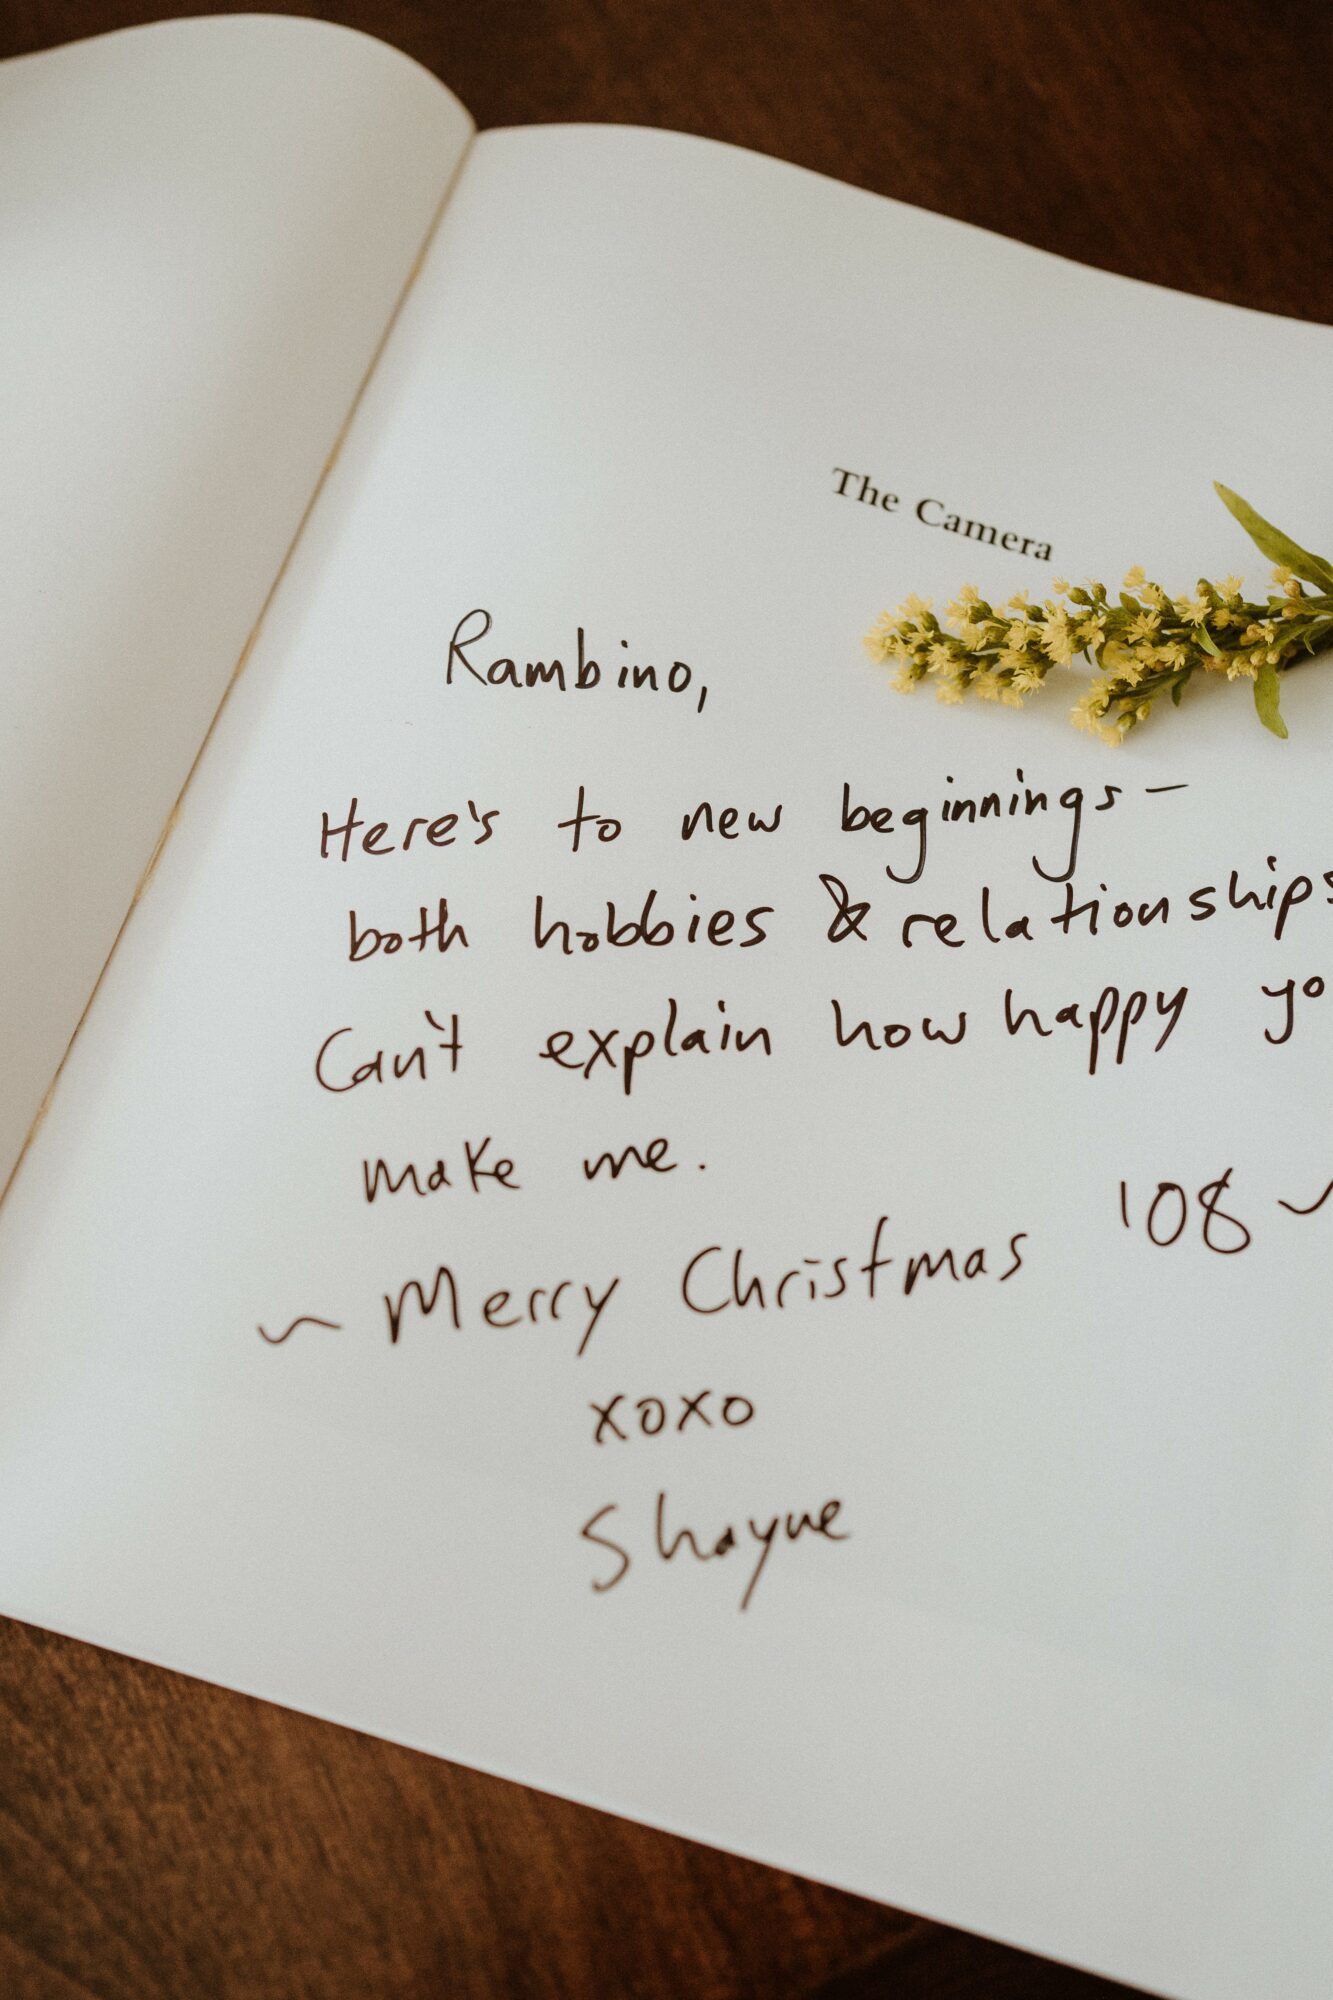 The Camera
Rambino,
Here's to new beginnings —
both hobbies & relationships
Can't explain how happy yo
make me.
~ Merry Christmas '08 ~
xoxo
Shayne